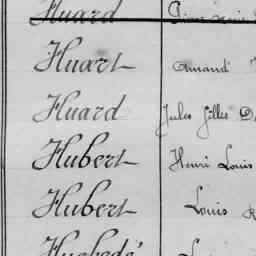 Huard
Huart Amand
Huard Jules Gilles
Hubert Henri Louis
Hubert Louis